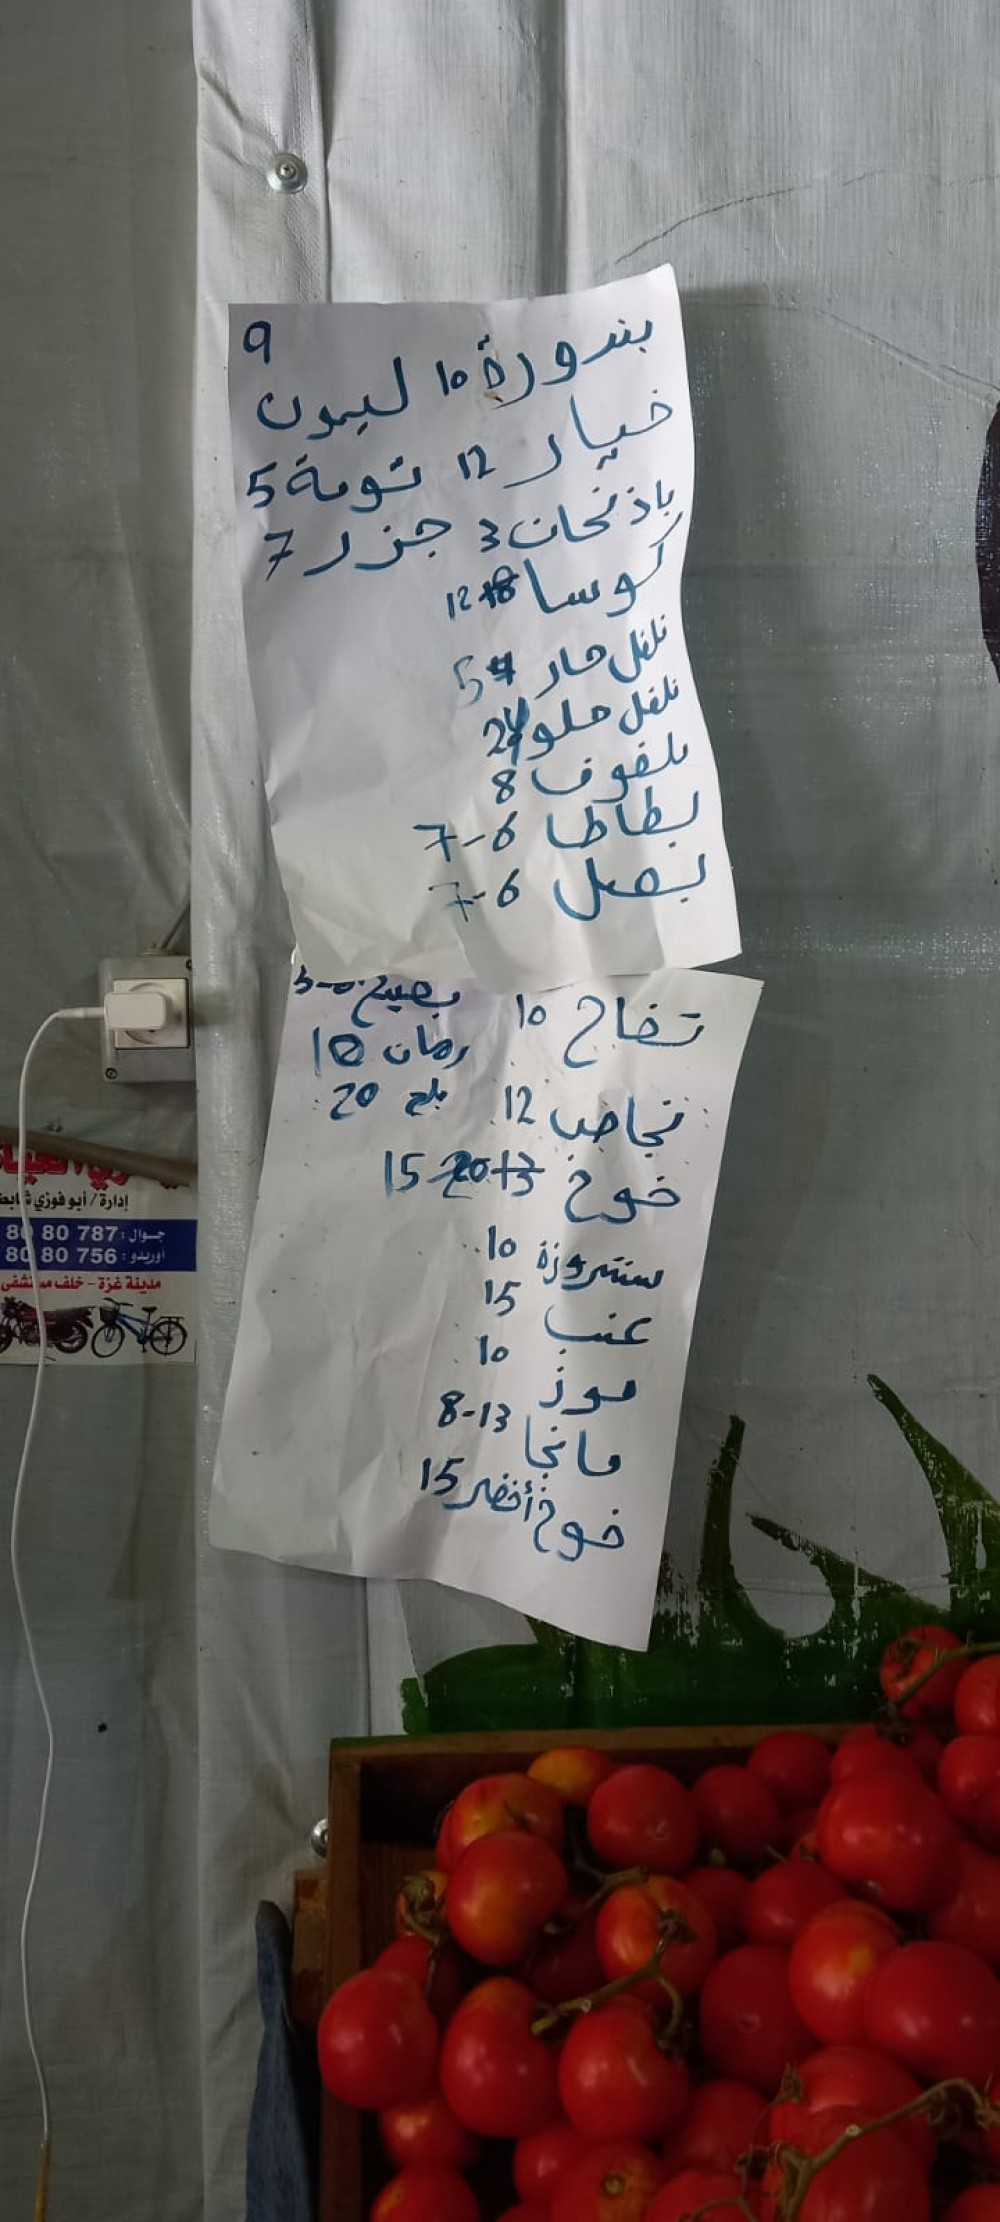 بندورة 10 ليمون 9
خيار 12 تومة 5
باذنجان 3 جزر 7
كوسا 12
فلفل حار 5
فلفل حلو 24
ملفوف 8
بطاطا 6-7
بصل 6-7
تفاح 10 بطيخ
رمان 10
نجاص 12 بلح 20
خوخ 15
سنتروزة 10
عنب 15
موز 10
مانجا 8-13
خوخ أخضر 15
إدارة / أبو فوزي
جوال: 787 80 80
أوريدو: 756 80 80
مدينة غزة - خلف مستشفى